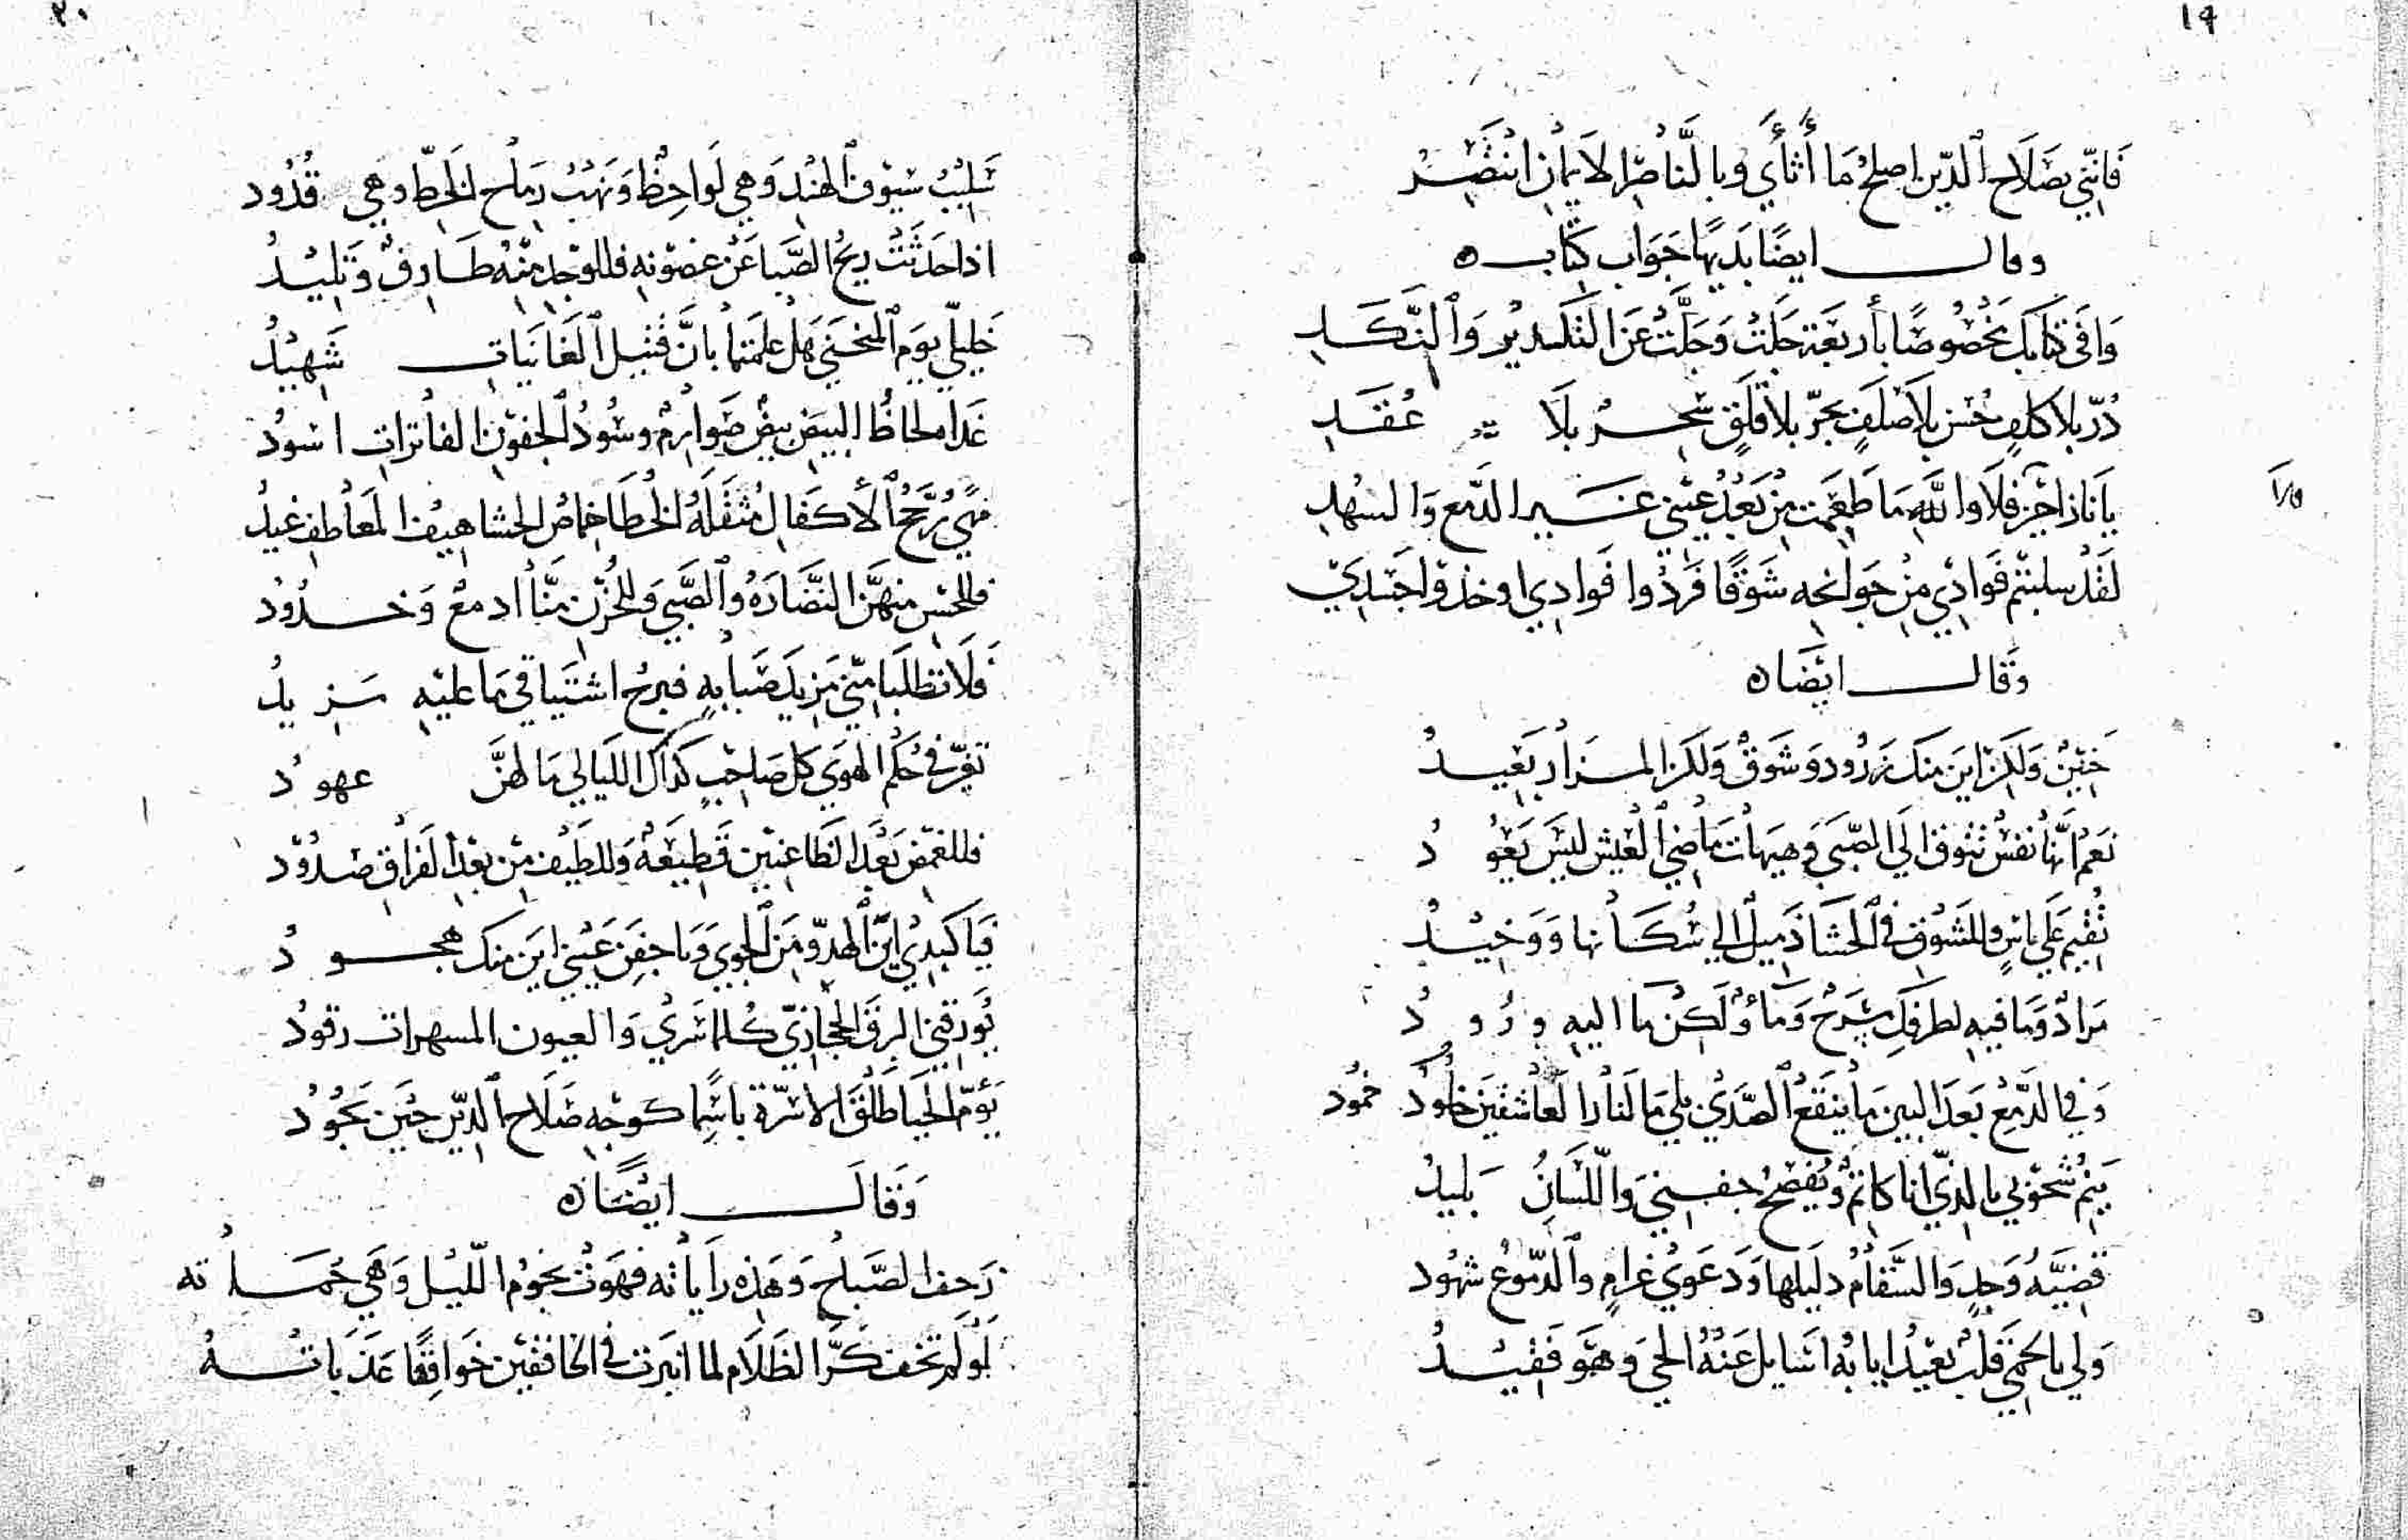 ١٩
فَانّي بصَلَاح ٱلدّين اصلحُ مَا أَثْأَي وبالنَّاصْر الايمان انْتَصِرُ
وقال ايضًا بَديهًا جَوَاب كتاب ه
وَافَي كتابك مخصُوصًا بأربعَة جَلَتْ وَجَلَّتْ عَن التَكدير وَٱلنَّكَدِ
دُرّ بلا كلفٍ حُسن بلا صَلَفٍ بحرّ بلا قلَقٍ سحرُ بلَا عُقَدِ
يا نازاحين فلَا واللَّهِ مَا طَعِمَت مِنْ بَعْدُ عيْني غَير الدَّمع وَالسهُدِ
لقَدْ سلبتم فَوادِي مِنْ جَوانحه شَوقًا فَردُوا فَوادِي او خذوا جَسَدِي
وَقَال ايضًا ه
حَنِيْنُ وَلكن اين منكَ زرُود وَشَوقُ وَلكن المَزارُ بَعِيدُ
نعَم انّها نفسُ تتوق الي الصّبَي وَهيَهات مَاضي ٱلعَيش ليسَ يَعُودُ
تُقيم عَلي ياسٍ وللشوق في ٱلحَشَا ذَميل الي سُكَانها وَوَخِيدُ
مَرادُ وَمَا فيهِ لطرفك مسْرَحُ وَمآءُ ولَكن مَا اليهِ وُرُودُ
وَفي الدَّمع بعَد البين مَا ينقعُ ٱلصَّدَي بلي مَا لنَار العَاشقين خمُود
يَنِمُّ شحوُبي بالذّي انا كاتمُ وَيُفصحُ جفني وَاللسَانُ بَليدُ
قضيَّهُ وَجدٍ وَالسَّقامُ دليلها وَدَعوي غرامٍ وٱلدّموُعُ شهُود
وَلي بالحمَي قلب بعيدُ ايابهُ اسَايل عَنْهُ الحي وَهوَ فَقيدُ
٢٠
سَليبُ سيوف ٱلهند وَهي لَواحِظُ وَنهبُ رمَاح ٱلخَطِّ وَهي قدُود
اذا حَدثَتْ ريحُ الصَّبا عَن غصوْنهِ فللوَجد منهُ طَارِفُ وَتَليدُ
خَليلّي يوَم ٱلمنحنَي هَلْ علمتما بانَّ قتيل ٱلغَانيَات شَهيدُ
غَداه لحاظُ البيض بيضُ صَوارمُ وسُودُ ٱلجفون الفاترات اسُود
مهًي رُجَّحُ ٱلأكفَال مُثقَلهُ الخُطَا خماصُ الحشا هيف المعَاطفِ غيدُ
فللحسن منهنَّ النَضَارَهُ وٱلصَّبي وَللحُزْن منَّا ادمعُ وَخدُودُ
فَلَا تطلبَا منّي مَزيدَ صَبابهٍ فبرحُ اشتَياقي مَا عليهِ مَزيدُ
تغيّر في حُكم الهوَي كل صَاحبٍ كذاكَ الليَالي مَا لهنَّ عهودُ
فللغمض بَعدَ الظاعنين قطيعَهُ وَللطيف من بعد الفراق صدُود
فيَا كبدي ايَن ٱلهدوّ مَن ٱلجوي وَيا جفن عَيني اين منك هجودُ
يُورقني البرق الحجَازيّ كلما سَري وَالعيون المسهرات رقودُ
يَؤمّ الحَيَا طَلْق الاسرّة باسِمًا كوجهِ صَلَاح ٱلدّين حينَ يجُودُ
وَقَالَ ايضًا ه
زَحِف الصَّباح وَهَذه رَايَاته فهَوَتْ نجُوم اللّيْل وَهَي حُمَاته
لَو لَم تخف كرَّ الظَلَام لما انبَرت في الخافقين خَوافقًا عَذَبَاتهُ